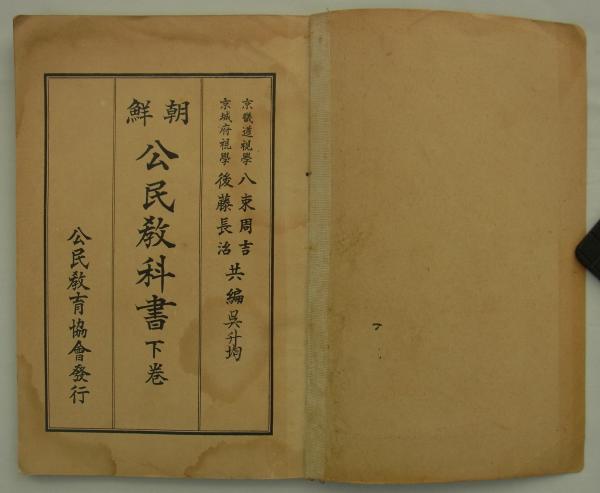 京畿道視學 八束周吉
京城府視學 後藤長治
共編 吳升均
朝鮮
公民敎科書 下卷
公民敎育協會發行